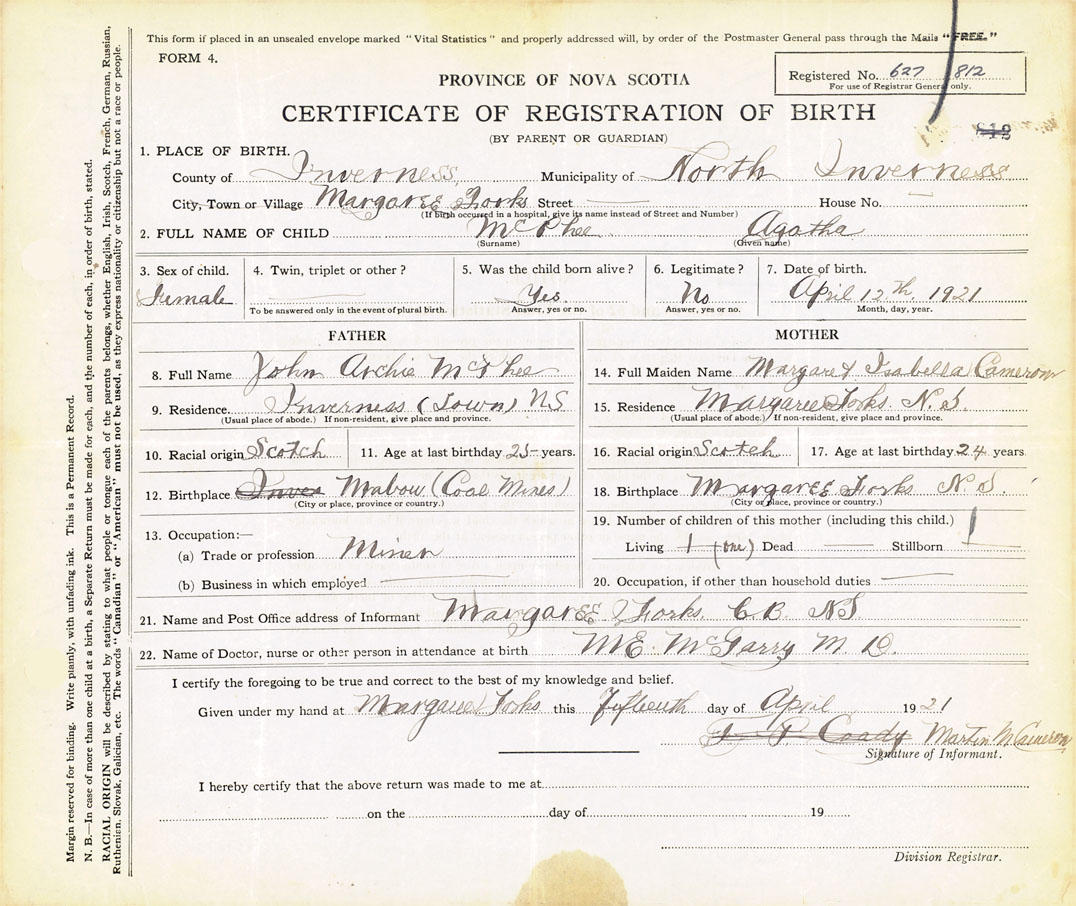 This form if placed in an unsealed envelope marked "Vital Statistics" and properly addressed will, by order of the Postmaster General pass through the Mails "FREE."
FORM 4.
PROVINCE OF NOVA SCOTIA
Registered No. 627 812
For use of Registrar General only.
CERTIFICATE OF REGISTRATION OF BIRTH
812
(BY PARENT OR GUARDIAN)
1. PLACE OF BIRTH.
County of Inverness Municipality of North Inverness
City, Town or Village Margaree Forks Street House No.
(If birth occused in a hospital, give its name instead of Street and Number)
2. FULL NAME OF CHILD McPhee Agatha
(Surname) (Given name)
3. Sex of child. 4. Twin, triplet or other? 5. Was the child born alive? 6. Legitimate? 7. Date of birth.
Female Yes. No April 12th, 1921
To be answered only in the event of plural birth. Answer, yes or no. Answer, yes or no. Month, day, year.
FATHER MOTHER
8. Full Name John Archie McPhee 14. Full Maiden Name Margaret Isabella Cameron
9. Residence. Inverness (Town) NS 15. Residence Margaree Forks. N.S.
(Usual place of abode.) If non-resident, give place and province. (Usual place of abode.) If non-resident, give place and province.
10. Racial origin Scotch 11. Age at last birthday 25 years. 16. Racial origin Scotch 17. Age at last birthday 24 years
12. Birthplace Inver Mabou (Coal Mines) 18. Birthplace Margaree Forks N.S.
(City or place, province or country.) (City or place, province or country.)
19. Number of children of this mother (including this child.) 1
13. Occupation:—
(a) Trade or profession Miner Living 1 (one) Dead Stillborn
(b) Business in which employed 20. Occupation, if other than household duties
21. Name and Post Office address of Informant Margaree Forks. C.B. NS
22. Name of Doctor, nurse or other person in attendance at birth ME. McGarry M.D.
I certify the foregoing to be true and correct to the best of my knowledge and belief.
Given under my hand at Margaree Forks this Fifteenth day of April 1921
Coady Martin M Cameron
Signature of Informant.
I hereby certify that the above return was made to me at
on the day of 19
Division Registrar.
Margin reserved for binding. Write plainly, with unfading ink. This is a Permanent Record.
N. B.—In case of more than one child at a birth, a Separate Return must be made for each, and the number of each, in order of birth, stated.
RACIAL ORIGIN will be described by stating to what people or tongue each of the parents belongs, whether English, Irish, Scotch, French, German, Russian,
Ruthenian, Slovak, Galician, etc. The words "Canadian" or "American" must not be used, as they express nationality or citizenship but not a race or people.